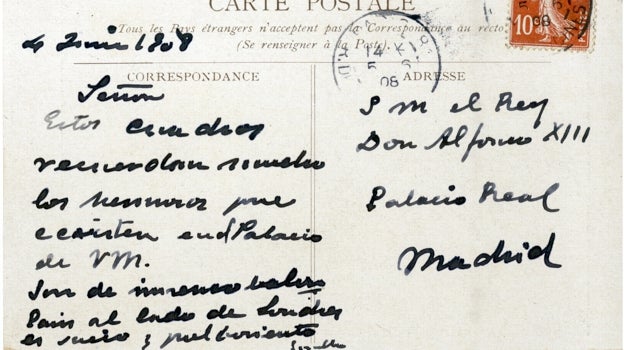 CARTE POSTALE
Tous les Pays étrangers n'acceptent pas la Correspondance au recto
(Se renseigner à la Poste).
4 Junio 1908
CORRESPONDANCE
Señor
Estos cuadros
recuerdan mucho
los hermosos que
existen en el Palacio
de VM.
Son de inmenso valor
Paris al lado de Londres
es sucio y pulvoriento
ADRESSE
S M el Rey
Don Alfonso XIII
Palacio Real
Madrid
10
08